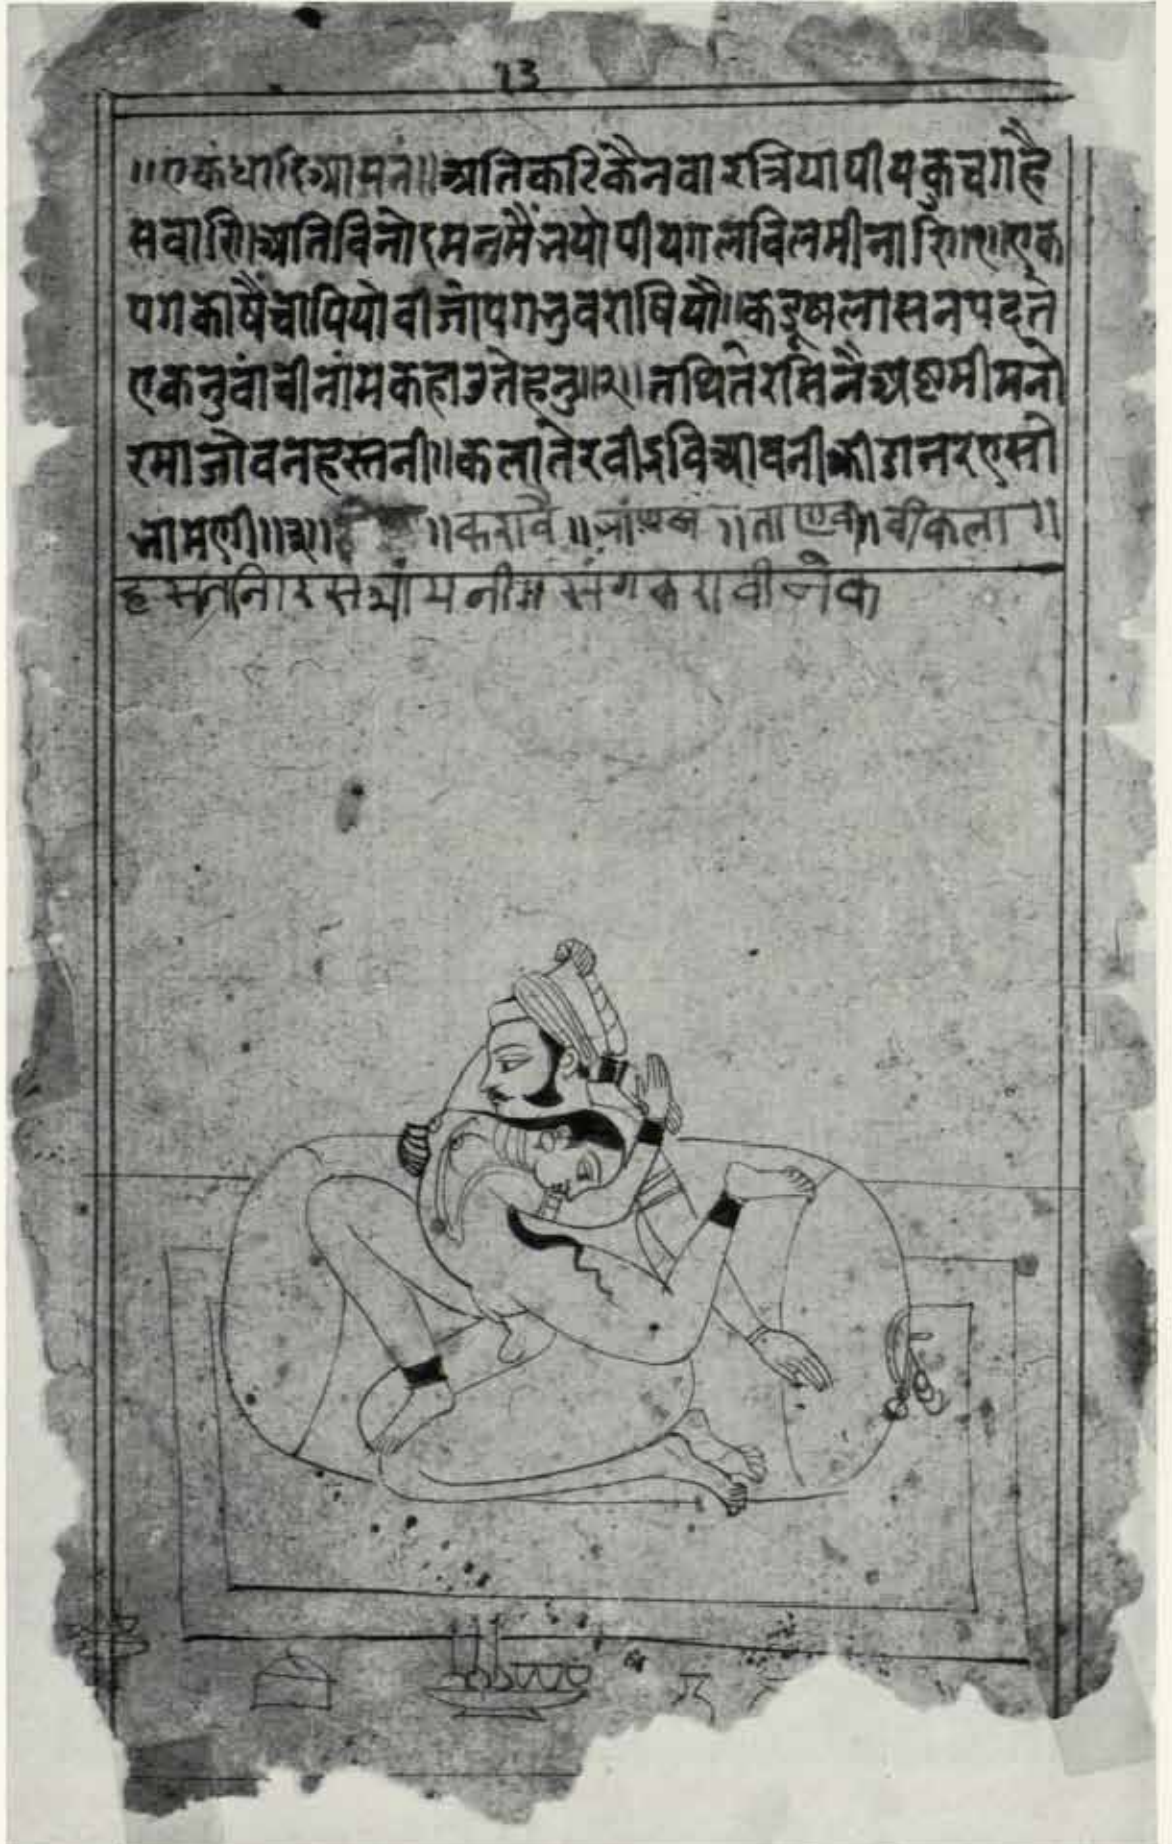 13
॥एकंधारिआसनं॥ अतिकरिकैनवारत्रियापीयकुचगहै
सवारि।अतिविनोदमनमैंनयोपीयगलविलमीनारि॥१॥एक
पगकांषैंचोपियोवीजोपगनुवराषियौ॥ आसनपदते
एकनुवांचीनांमकहाउतेहनु॥२॥तथितेरसिनैअष्टमीमनो
रमाजोवनहस्तनी॥कलातेरवीदविआवनीक्रीडानरएसी
नामणी॥३॥ ॥करावै॥ ॥ता वीकला॥
हसतनिारस संगकरावीजेक